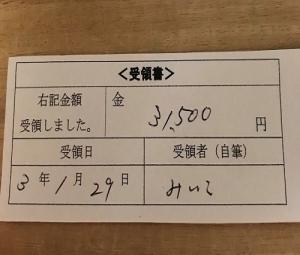 <受領書>
右記金額
受領しました。
金 31,500 円
受領日 受領者（自筆）
3年1月29日 みいこ